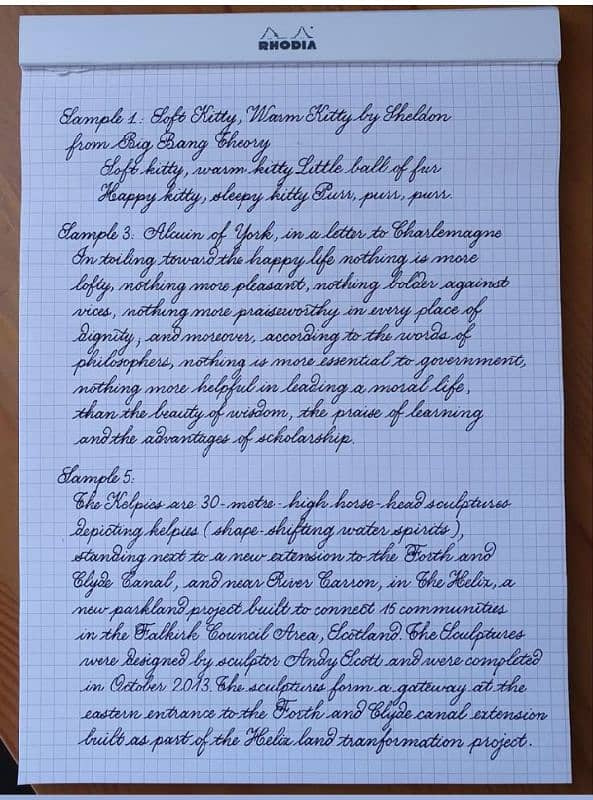 RHODIA
Sample 1: Soft Kitty, Warm Kitty by Sheldon
from Big Bang Theory
Soft kitty, warm kitty Little ball of fur
Happy kitty, sleepy kitty Purr, purr, purr.
Sample 3: Alcuin of York, in a letter to Charlemagne
In toiling toward the happy life nothing is more
lofty, nothing more pleasant, nothing bolder against
vices, nothing more praiseworthy in every place of
dignity, and moreover, according to the words of
philosophers, nothing is more essential to government,
nothing more helpful in leading a moral life,
than the beauty of wisdom, the praise of learning
and the advantages of scholarship.
Sample 5:
The Kelpies are 30-metre-high horse-head sculptures
depicting kelpies (shape-shifting water spirits),
standing next to a new extension to the Forth and
Clyde Canal, and near River Carron, in The Helix, a
new parkland project built to connect 16 communities
in the Falkirk Council Area, Scotland. The Sculptures
were designed by sculptor Andy Scott and were completed
in October 2013. The sculptures form a gateway at the
eastern entrance to the Forth and Clyde canal extension
built as part of the Helix land tranformation project.